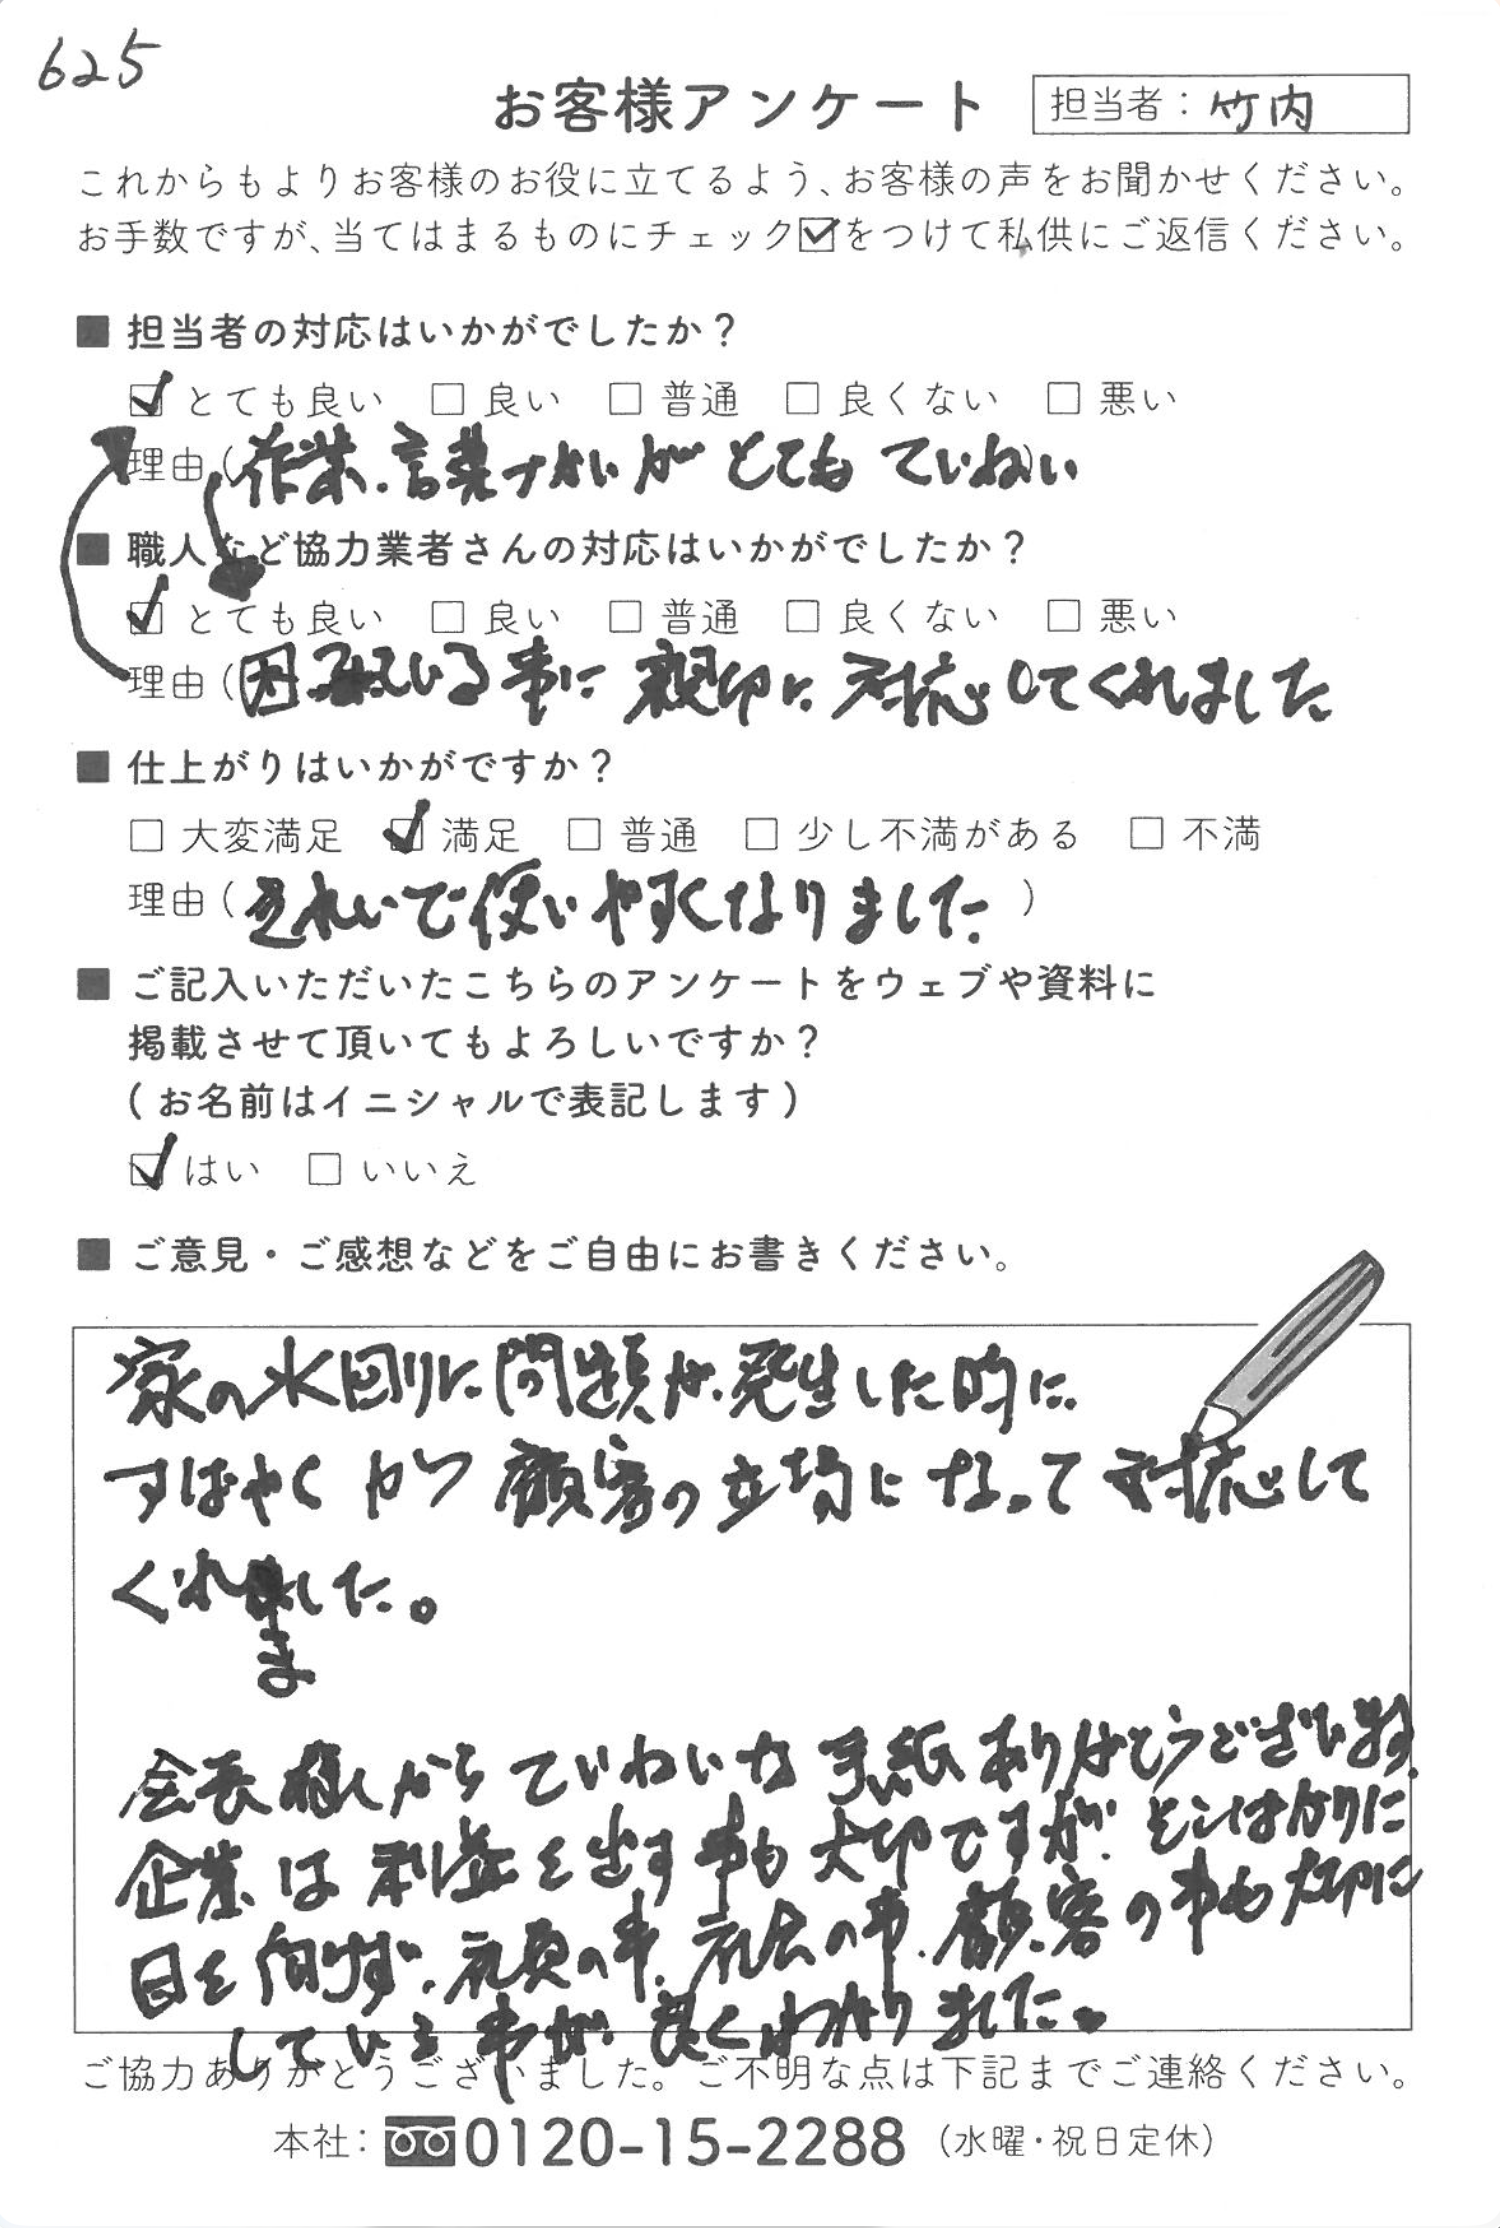 625
お客様アンケート
担当者：竹内
これからもよりお客様のお役に立てるよう、お客様の声をお聞かせください。
お手数ですが、当てはまるものにチェック☑をつけて私供にご返信ください。
■ 担当者の対応はいかがでしたか？
☑ とても良い □ 良い □ 普通 □ 良くない □ 悪い
理由（作業、言葉づかいがとてもていねい）
■ 職人など協力業者さんの対応はいかがでしたか？
☑ とても良い □ 良い □ 普通 □ 良くない □ 悪い
理由（困っている事に親切に対応してくれました
■ 仕上がりはいかがですか？
□ 大変満足 ☑ 満足 □ 普通 □ 少し不満がある □ 不満
理由（きれいで使いやすくなりました）
■ ご記入いただいたこちらのアンケートをウェブや資料に
掲載させて頂いてもよろしいですか？
(お名前はイニシャルで表記します)
☑ はい □ いいえ
■ ご意見・ご感想などをご自由にお書きください。
家の水回りに問題が発生した時に
すばやくかつ顧客の立場になって対応して
くれました。
会長様からていねいな手紙ありがとうございます
企業は利益を出す事も大切ですが、そこばかりに
目を向けず、社員の事、社会の事、顧客の事も大切に
している事が良くわかりました。
ご協力ありがとうございました。ご不明な点は下記までご連絡ください。
本社：0120-15-2288（水曜・祝日定休）